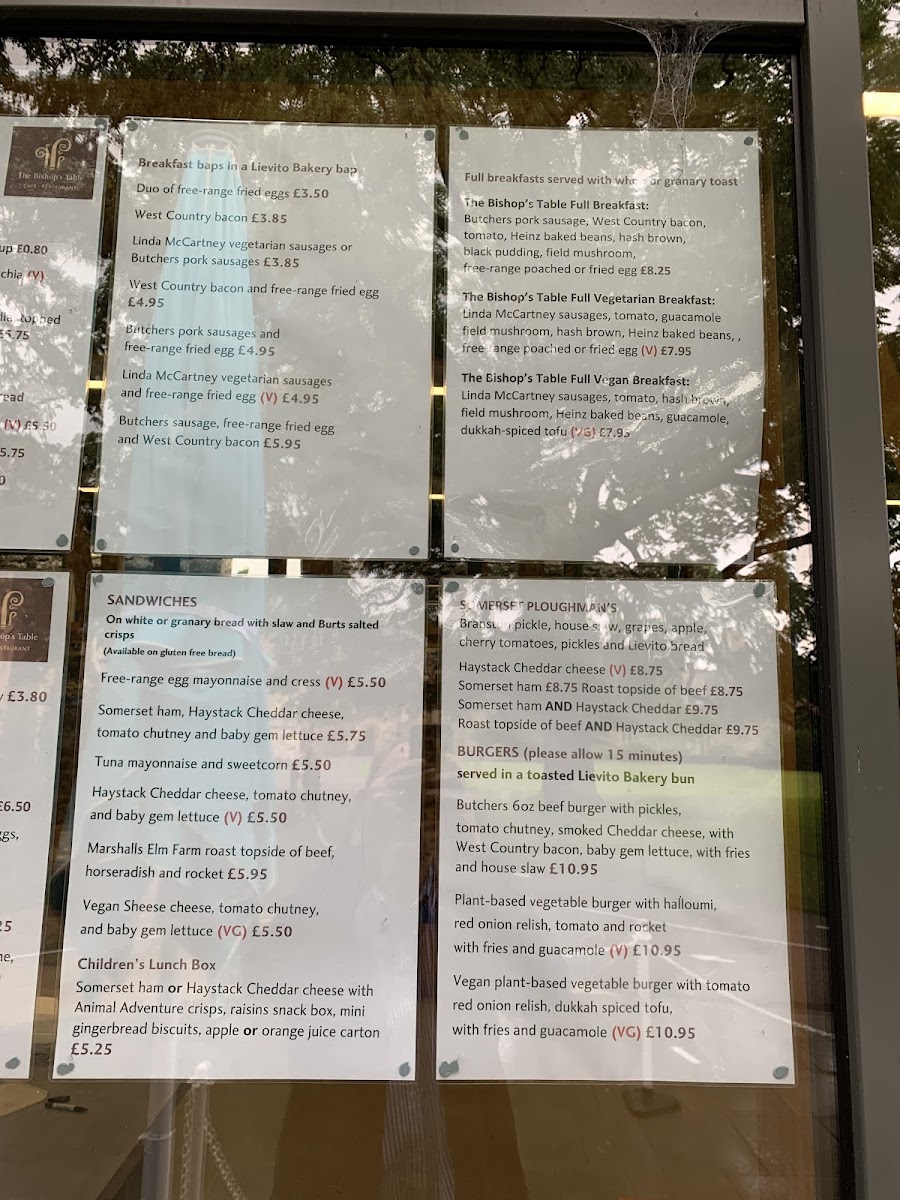 The Bishop's Table
CAFE RESTAURANT
up £0.80
chia (V)
topped
£5.75
read
(V) £5.50
5.75
0
Breakfast baps in a Lievito Bakery bap
Duo of free-range fried eggs £3.50
West Country bacon £3.85
Linda McCartney vegetarian sausages or
Butchers pork sausages £3.85
West Country bacon and free-range fried egg
£4.95
Butchers pork sausages and
free-range fried egg £4.95
Linda McCartney vegetarian sausages
and free-range fried egg (V) £4.95
Butchers sausage, free-range fried egg
and West Country bacon £5.95
Full breakfasts served with or granary toast
The Bishop's Table Full Breakfast:
Butchers pork sausage, West Country bacon,
tomato, Heinz baked beans, hash brown,
black pudding, field mushroom,
free-range poached or fried egg £8.25
The Bishop's Table Full Vegetarian Breakfast:
Linda McCartney sausages, tomato, guacamole
field mushroom, hash brown, Heinz baked beans, ,
free-range poached or fried egg (V) £7.95
The Bishop's Table Full Vegan Breakfast:
Linda McCartney sausages, tomato, hash brown,
field mushroom, Heinz baked beans, guacamole,
dukkah-spiced tofu (VG) £7.95
op's Table
STAURANT
£3.80
£6.50
ggs,
25
ne,
SANDWICHES
On white or granary bread with slaw and Burts salted
crisps
(Available on gluten free bread)
Free-range egg mayonnaise and cress (V) £5.50
Somerset ham, Haystack Cheddar cheese,
tomato chutney and baby gem lettuce £5.75
Tuna mayonnaise and sweetcorn £5.50
Haystack Cheddar cheese, tomato chutney,
and baby gem lettuce (V) £5.50
Marshalls Elm Farm roast topside of beef,
horseradish and rocket £5.95
Vegan Sheese cheese, tomato chutney,
and baby gem lettuce (VG) £5.50
Children's Lunch Box
Somerset ham or Haystack Cheddar cheese with
Animal Adventure crisps, raisins snack box, mini
gingerbread biscuits, apple or orange juice carton
£5.25
SOMERSET PLOUGHMAN'S
Branston pickle, house slaw, grapes, apple,
cherry tomatoes, pickles and Lievito bread
Haystack Cheddar cheese (V) £8.75
Somerset ham £8.75 Roast topside of beef £8.75
Somerset ham AND Haystack Cheddar £9.75
Roast topside of beef AND Haystack Cheddar £9.75
BURGERS (please allow 15 minutes)
served in a toasted Lievito Bakery bun
Butchers 6oz beef burger with pickles,
tomato chutney, smoked Cheddar cheese, with
West Country bacon, baby gem lettuce, with fries
and house slaw £10.95
Plant-based vegetable burger with halloumi,
red onion relish, tomato and rocket
with fries and guacamole (V) £10.95
Vegan plant-based vegetable burger with tomato
red onion relish, dukkah spiced tofu,
with fries and guacamole (VG) £10.95